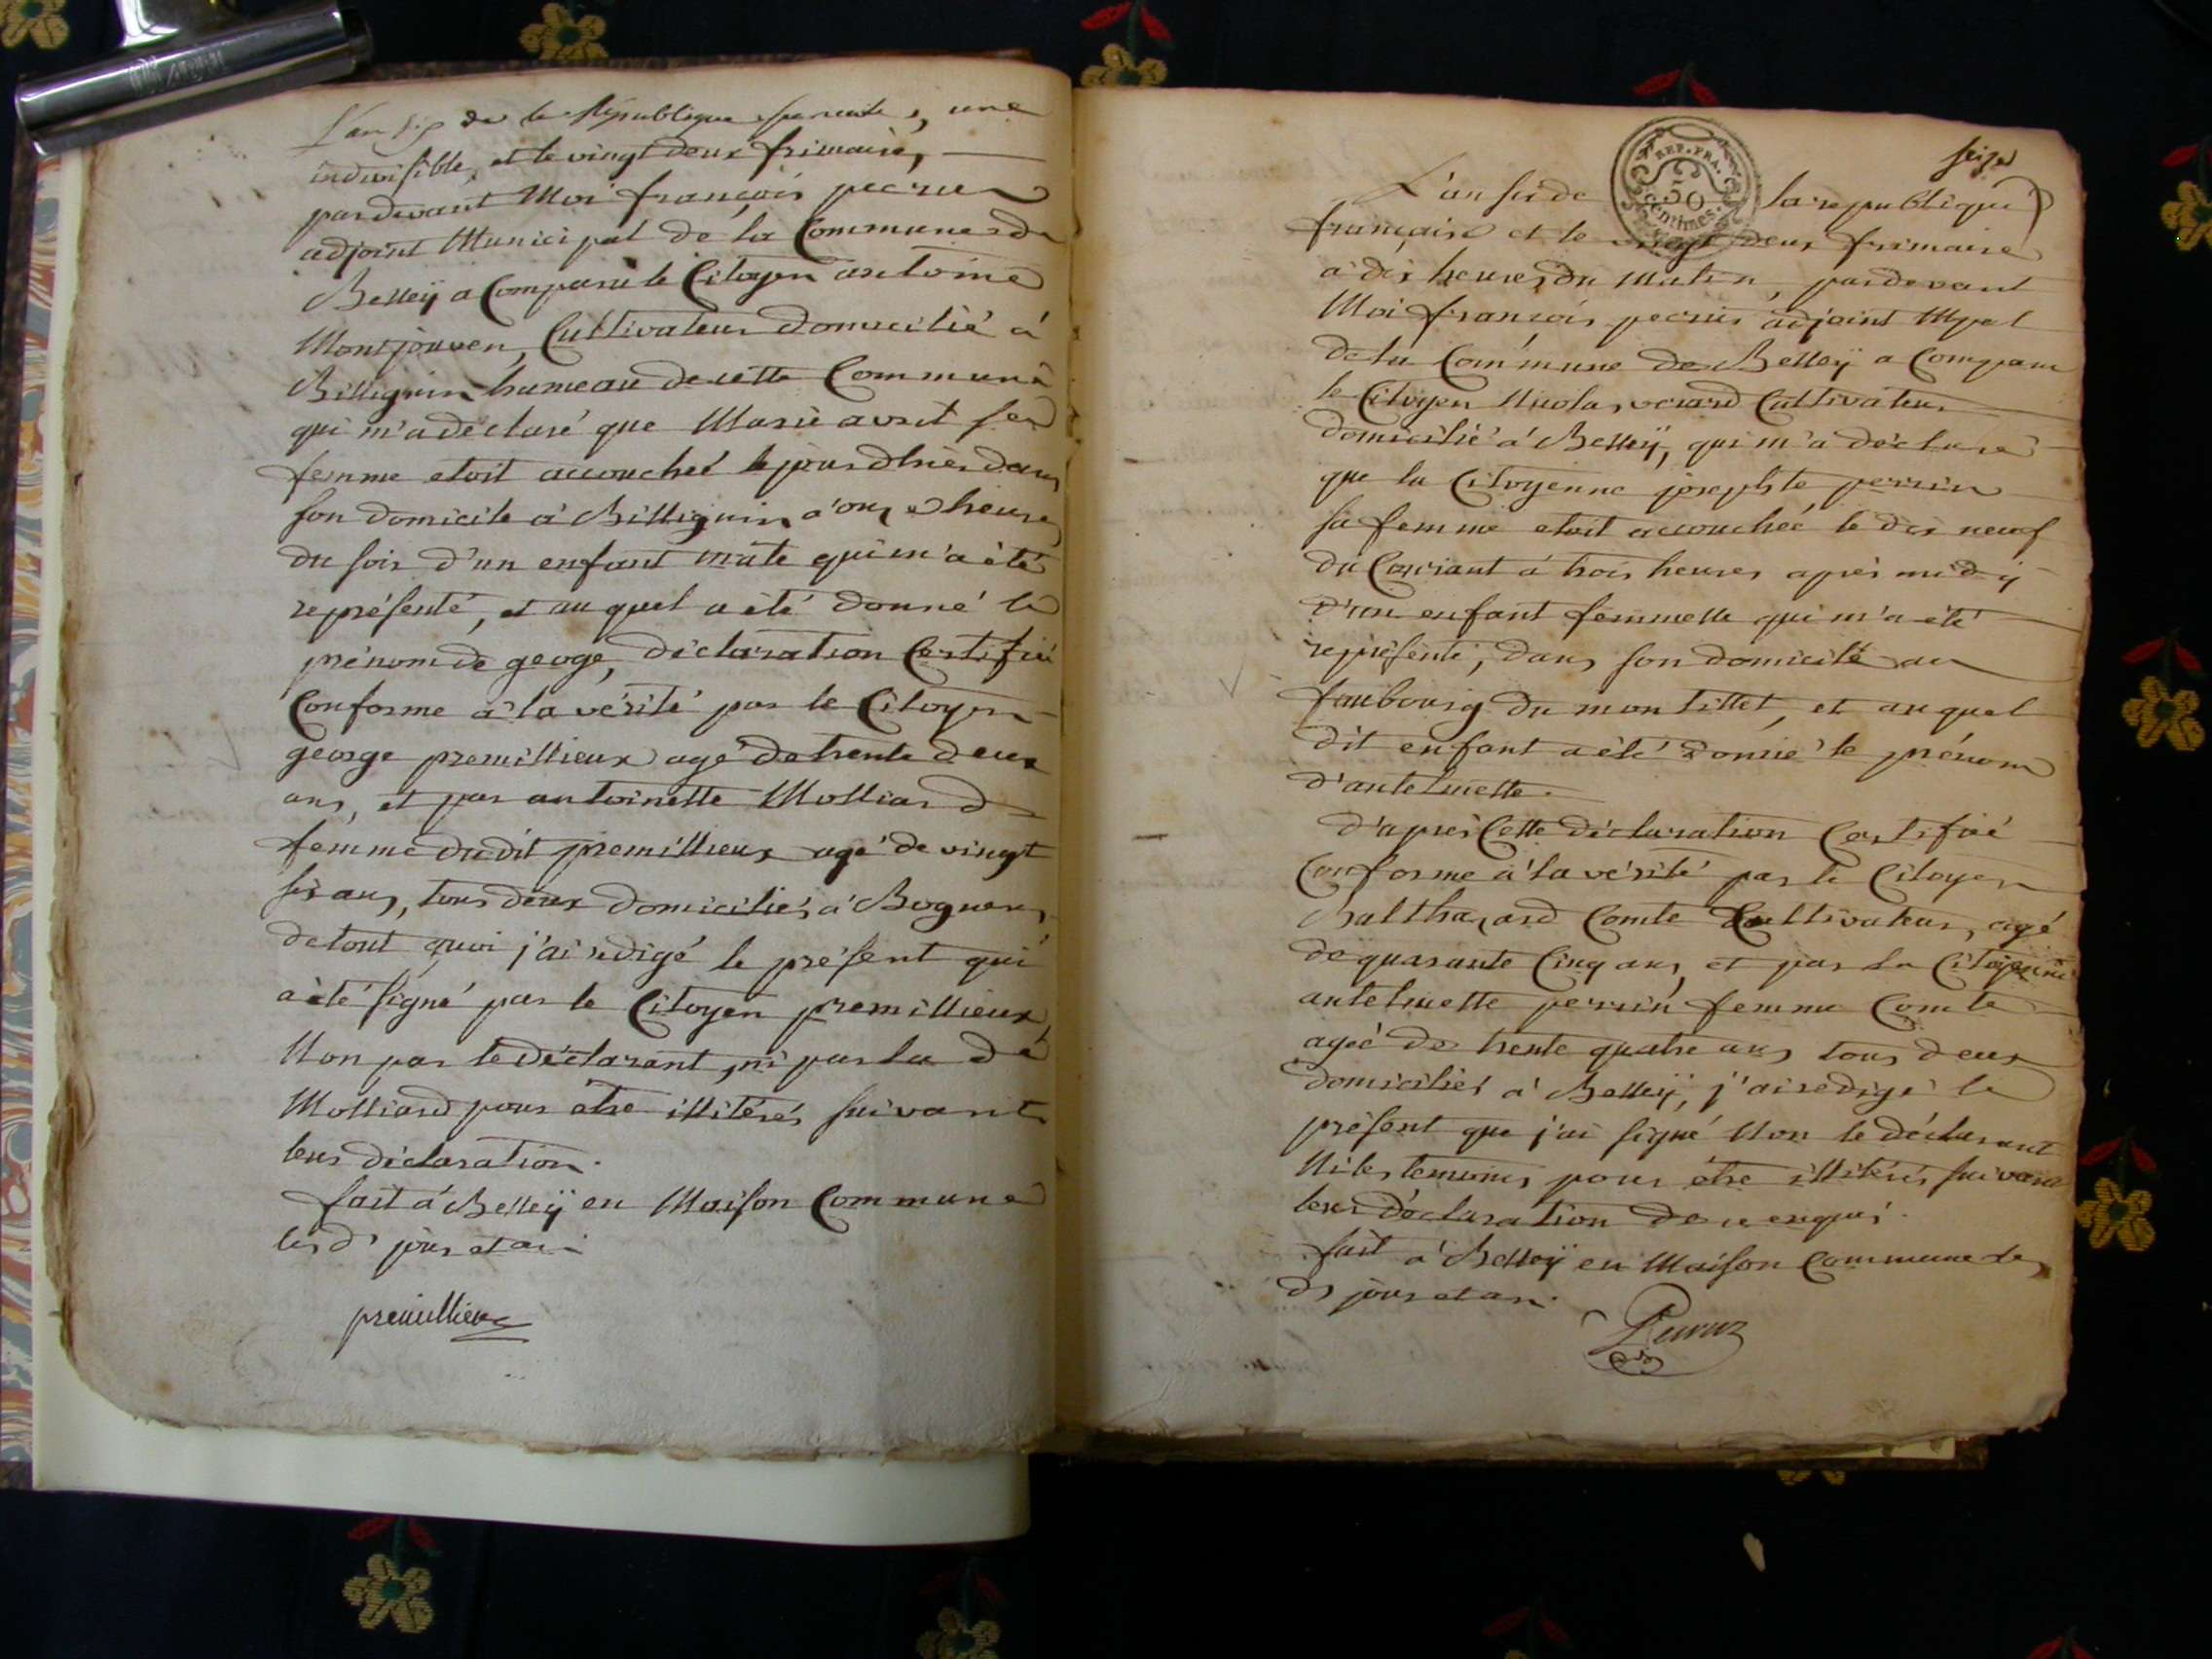 L'an six de la République francaise, une
indivisible, et le vingt deux frimaire,
pardevant Moi françois perrin
adjoint Municipal de la Commune de
Belleÿ a Comparu le Citoyen antoine
Montjouven, Cultivateur domicilié á
Billignin hameau de cette Commune
qui m'a déclaré que Marie avrit sa
femme etoit accouchée le jour d'hier dans
son domicile á Billignin a onze heures
du soir d'un enfant mâle qui m'a été
représenté, et auquel a été donné le
prénom de geoge, déclaration Certifié
Conforme a la vérité par le Citoyen
george premillieux agé de trente deux
ans, et par antoinette Molliard
femme du dit premillieux agé de vingt
six ans, tous deux domiciliés á Bognens,
de tout quoi j'ai rédigé le présent qui
a été signé par le Citoyen premillieux
Non par le déclarant, ni par la de
Molliard pour etre illitérés suivant
leur déclaration.
fait á Belleÿ en Maison Commune
les d' jour et an
premillieux
seize
REP. FRA.
50
centimes.
L'an six de la republique
française et le vingt deux frimaire
a dix heures du matin, pardevant
Moi françois perrin adjoint Mpal
de la Commune de Belleÿ a Comparu
le Citoyen Nicolas verard Cultivateur
domicilié á Belleÿ, qui m'a déclaré
que la Citoyenne josephte perrin
sa femme etoit accouchée le dix neuf
du Courant á trois heures après midÿ
d'un enfant femmelle qui m'a été
représenté, dans son domicile au
faubourg du montillet, et auquel
dit enfant a été donné le prénom
d'antelmette.
d'après Cette déclaration Certifié
Conforme á la vérité par le Citoyen
Balthazard Comte Cultivateur, agé
de quarante Cinq ans, et par la Citoyenne
antelmette perrin femme Comte
agée de trente quatre ans tous deux
domiciliés á Belleÿ, j'ai rédigé le
présent que j'ai signé Non le déclarant
Ni les temoins pour etre illitérés suivant
leur déclaration de ce enquis.
fait á Belleÿ en Maison Commune les
ds jour et an.